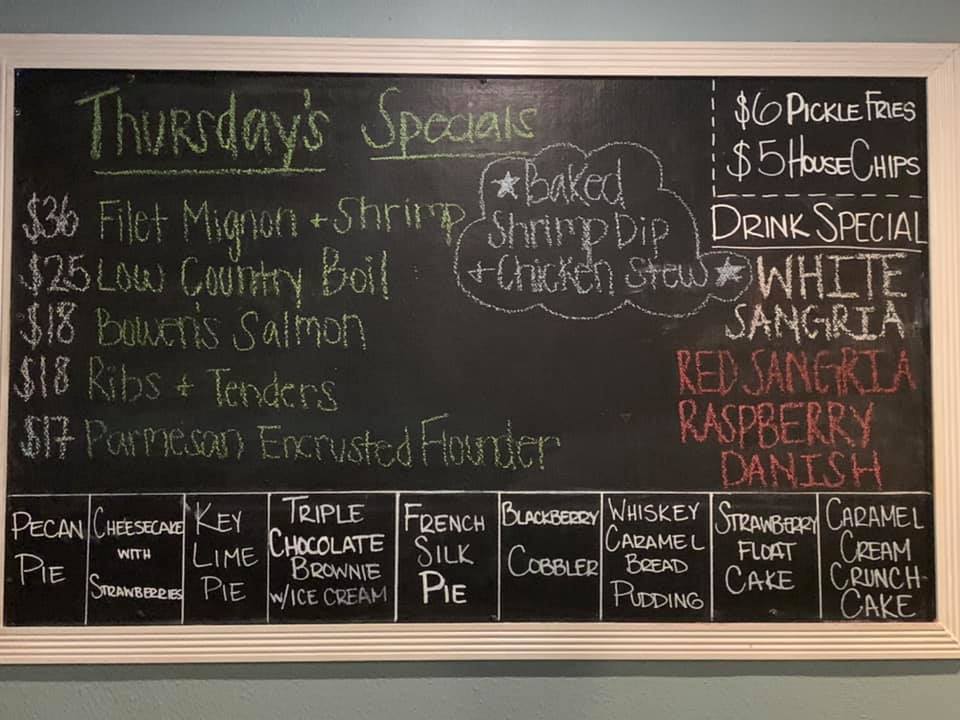 Thursday's Specials
$36 Filet Mignon + Shrimp
$25 Low Country Boil
$18 Bowen's Salmon
$18 Ribs + Tenders
$17 Parmesan Encrusted Flounder
★Baked
Shrimp Dip
+ Chicken Stew★
$6 PICKLE FRIES
$5 HOUSE CHIPS
DRINK SPECIAL
WHITE
SANGRIA
RED SANGRIA
RASPBERRY
DANISH
PECAN
PIE
CHEESECAKE
WITH
STRAWBERRIES
KEY
LIME
PIE
TRIPLE
CHOCOLATE
BROWNIE
W/ICE CREAM
FRENCH
SILK
PIE
BLACKBERRY
COBBLER
WHISKEY
CARAMEL
BREAD
PUDDING
STRAWBERRY
FLOAT
CAKE
CARAMEL
CREAM
CRUNCH
CAKE